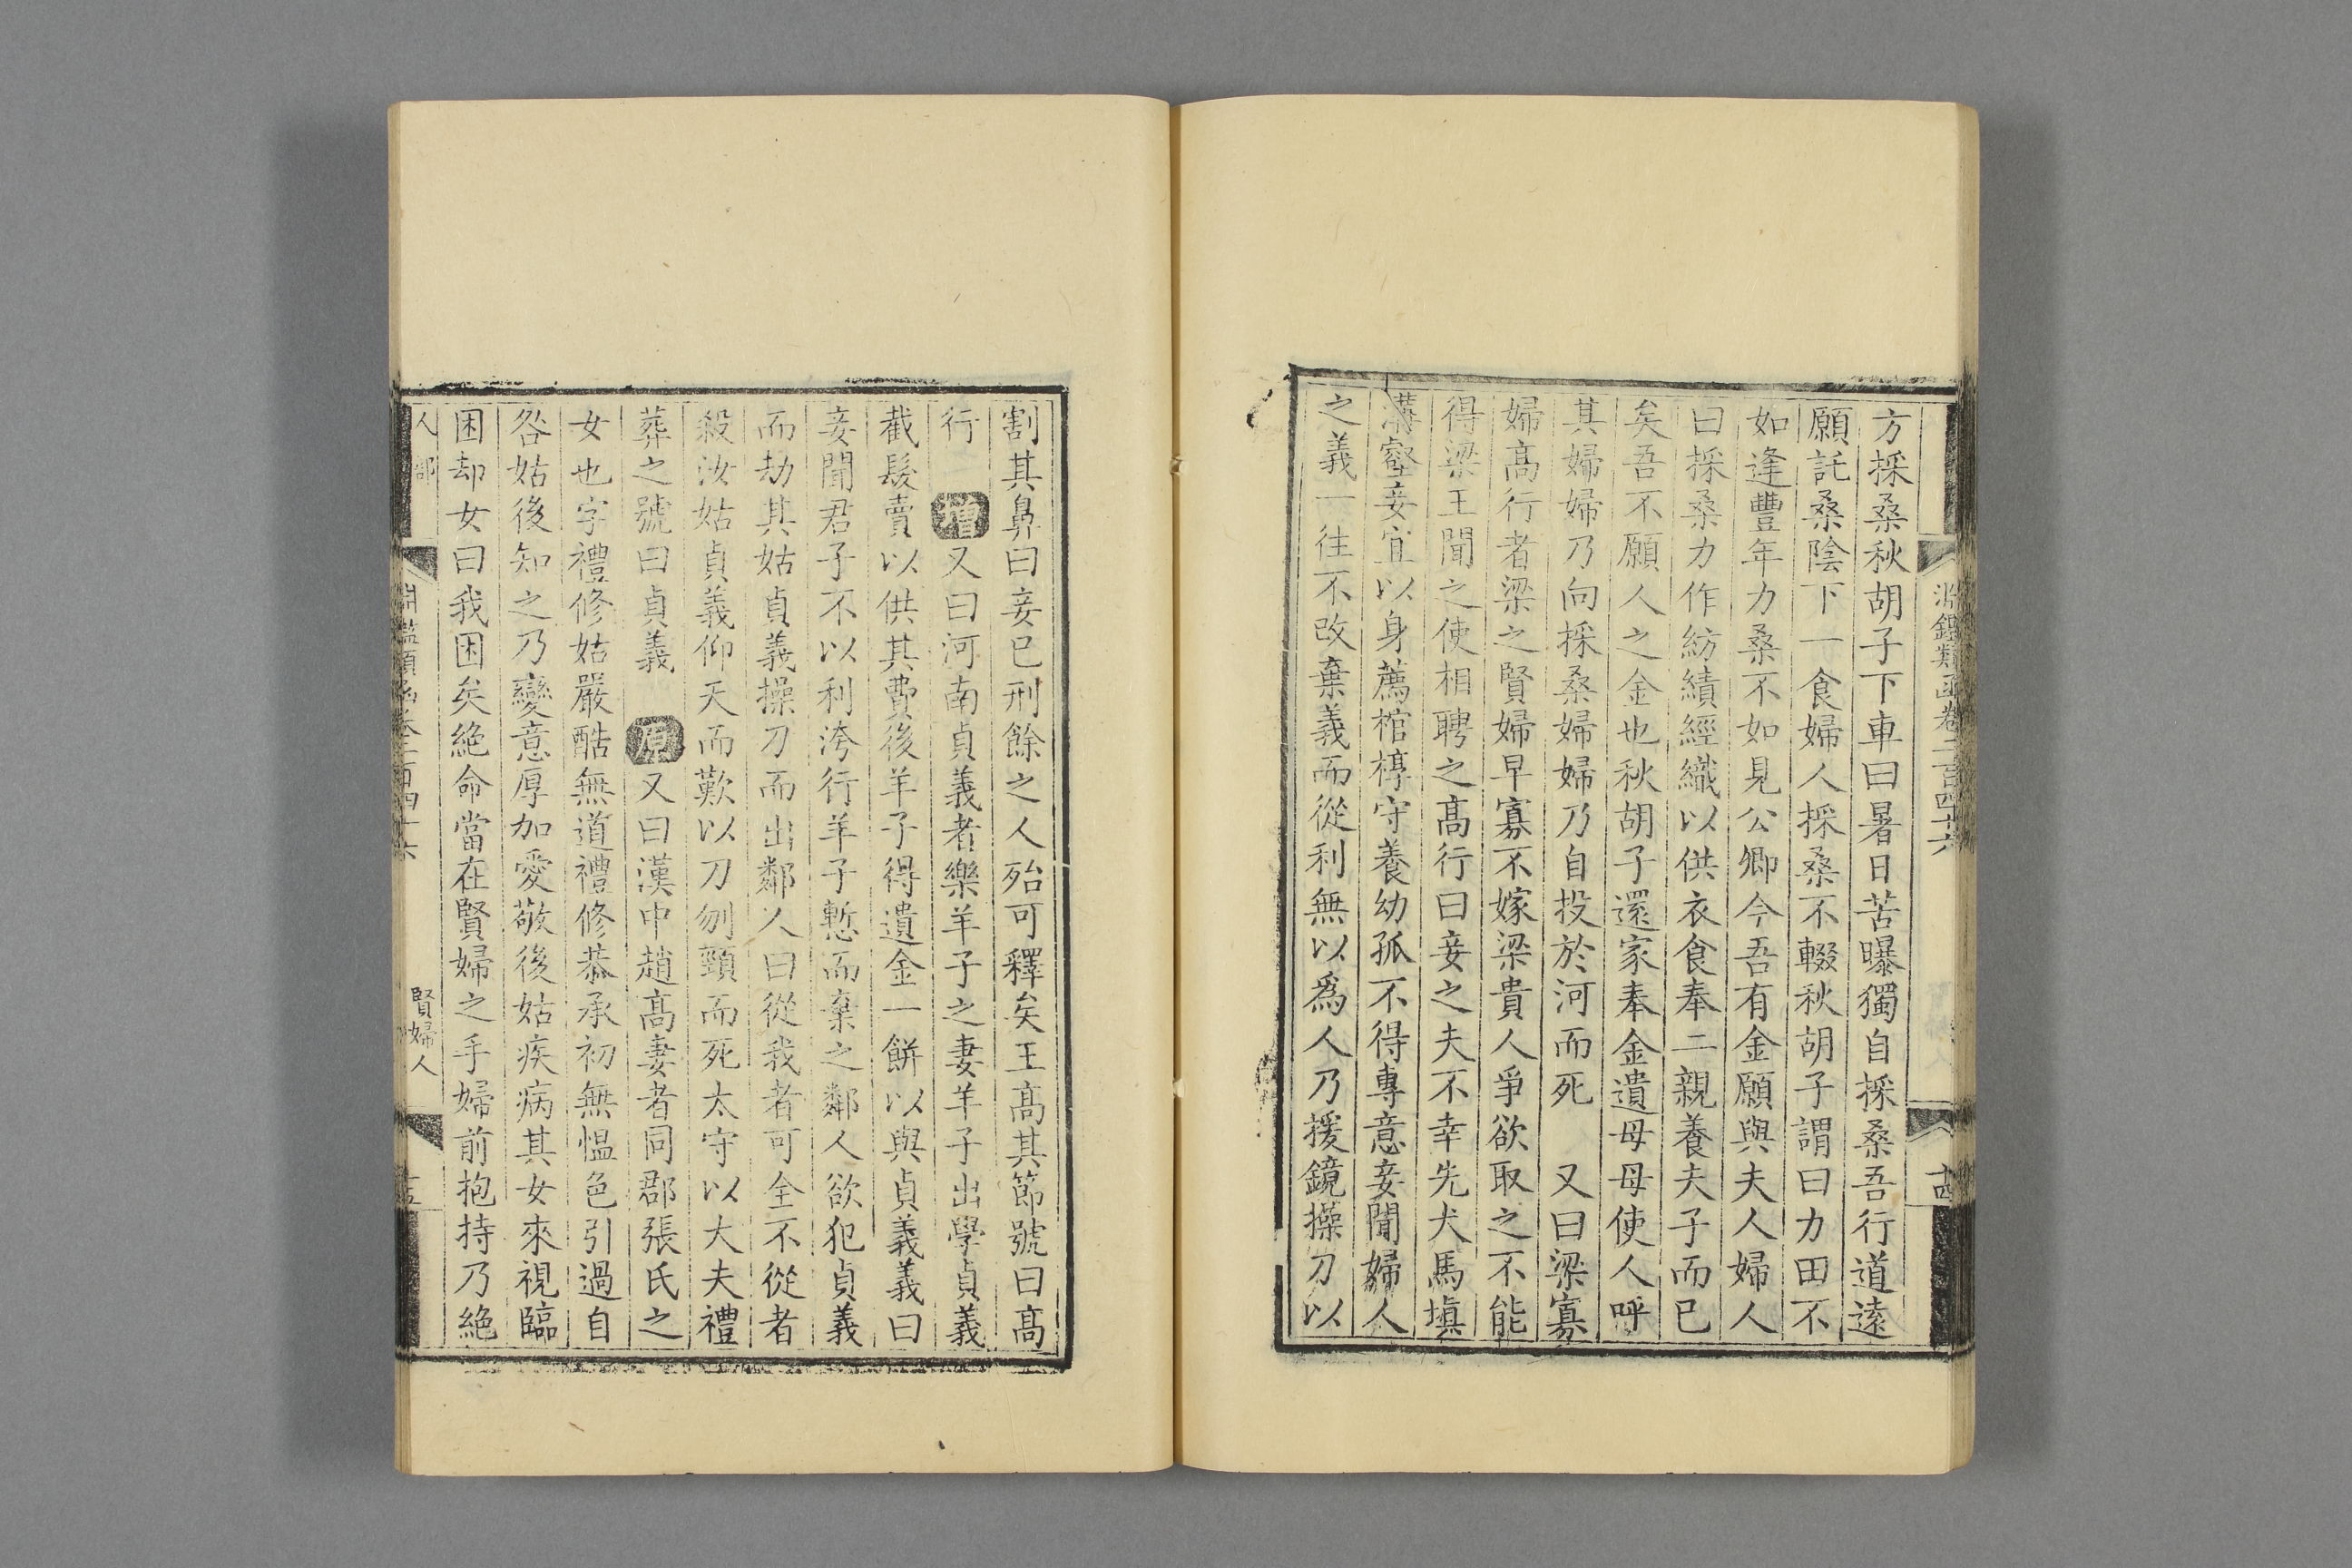 淵鑑類函卷二百四十六
十四
方採桑秋胡子下車曰暑日苦曝獨自採桑吾行道遠
願託桑陰下一食婦人採桑不輟秋胡子謂曰力田不
如逢豐年力桑不如見公卿今吾有金願與夫人婦人
曰採桑力作紡績經織以供衣食奉二親養夫子而已
矣吾不願人之金也秋胡子還家奉金遺母母使人呼
其婦婦乃向採桑婦婦乃自投於河而死 又曰梁寡
婦高行者梁之賢婦早寡不嫁梁貴人爭欲取之不能
得梁王聞之使相聘之高行曰妾之夫不幸先犬馬塡
溝壑妾宜以身薦棺槨守養幼孤不得專意妾聞婦人
之義一往不改棄義而從利無以爲人乃援鏡操刀以
割其鼻曰妾已刑餘之人殆可釋矣王高其節號曰高
行 增又曰河南貞義者樂羊子之妻羊子出學貞義
截髮賣以供其費後羊子得遺金一餅以與貞義義曰
妾聞君子不以利洿行羊子慙而棄之鄰人欲犯貞義
而劫其姑貞義操刀而出鄰人曰從我者可全不從者
殺汝姑貞義仰天而歎以刀刎頸而死太守以大夫禮
葬之號曰貞義 原又曰漢中趙高妻者同郡張氏之
女也字禮修姑嚴酷無道禮修恭承初無慍色引過自
咎姑後知之乃變意厚加愛敬後姑疾病其女來視臨
困却女曰我困矣絶命當在賢婦之手婦前抱持乃絶
人部
淵鑑類函卷二百四十六
賢婦人
十五